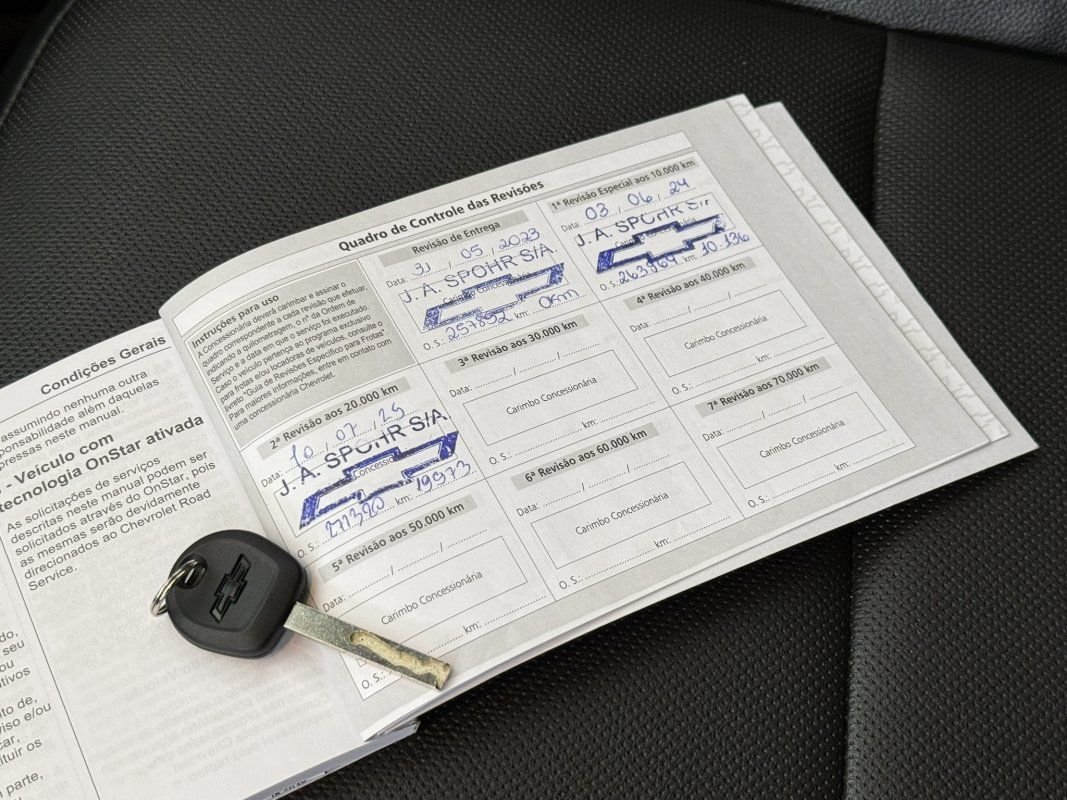 Condições Gerais
assumindo nenhuma outra
ponsabilidade além daquelas
pressas neste manual.
- Veículo com
tecnologia OnStar ativada
As solicitações de serviços
descritas neste manual podem ser
solicitados através do OnStar, pois
as mesmas serão devidamente
direcionados ao Chevrolet Road
Service.
do,
seu
ou
tivos
to de,
viso e/ou
car,
tituir os
m parte,
Quadro de Controle das Revisões
Instruções para uso
A Concessionária deverá carimbar e assinar o
quadro correspondente a cada revisão que efetuar,
indicando a quilometragem, o nº da Ordem de
Serviço e a data em que o serviço foi executado.
Caso o veículo pertença ao programa exclusivo
para frotas e/ou locadoras de veículos, consulte o
livreto "Guia de Revisões Específico para Frotas"
Para maiores informações, entre em contato com
uma concessionária Chevrolet.
Revisão de Entrega
Data: 31 / 05 / 2023
J. A. SPOHR S/A.
O. S.: 257892 0km
1ª Revisão Especial aos 10.000 km
Data: 03 / 06 / 24
J. A. SPOHR S/A
O. S.: 263969 km: 10.136
2ª Revisão aos 20.000 km
Data: 10 / 07 / 25
J. A. SPOHR S/A.
O. S.: 271390 km: 19973
3ª Revisão aos 30.000 km
Data: / /
Carimbo Concessionária
O. S.: km:
4ª Revisão aos 40.000 km
Data: / /
Carimbo Concessionária
O. S.: km:
5ª Revisão aos 50.000 km
Data: / /
Carimbo Concessionária
O. S.: km:
6ª Revisão aos 60.000 km
Data: / /
Carimbo Concessionária
O. S.: km:
7ª Revisão aos 70.000 km
Data: / /
Carimbo Concessionária
O. S.: km: